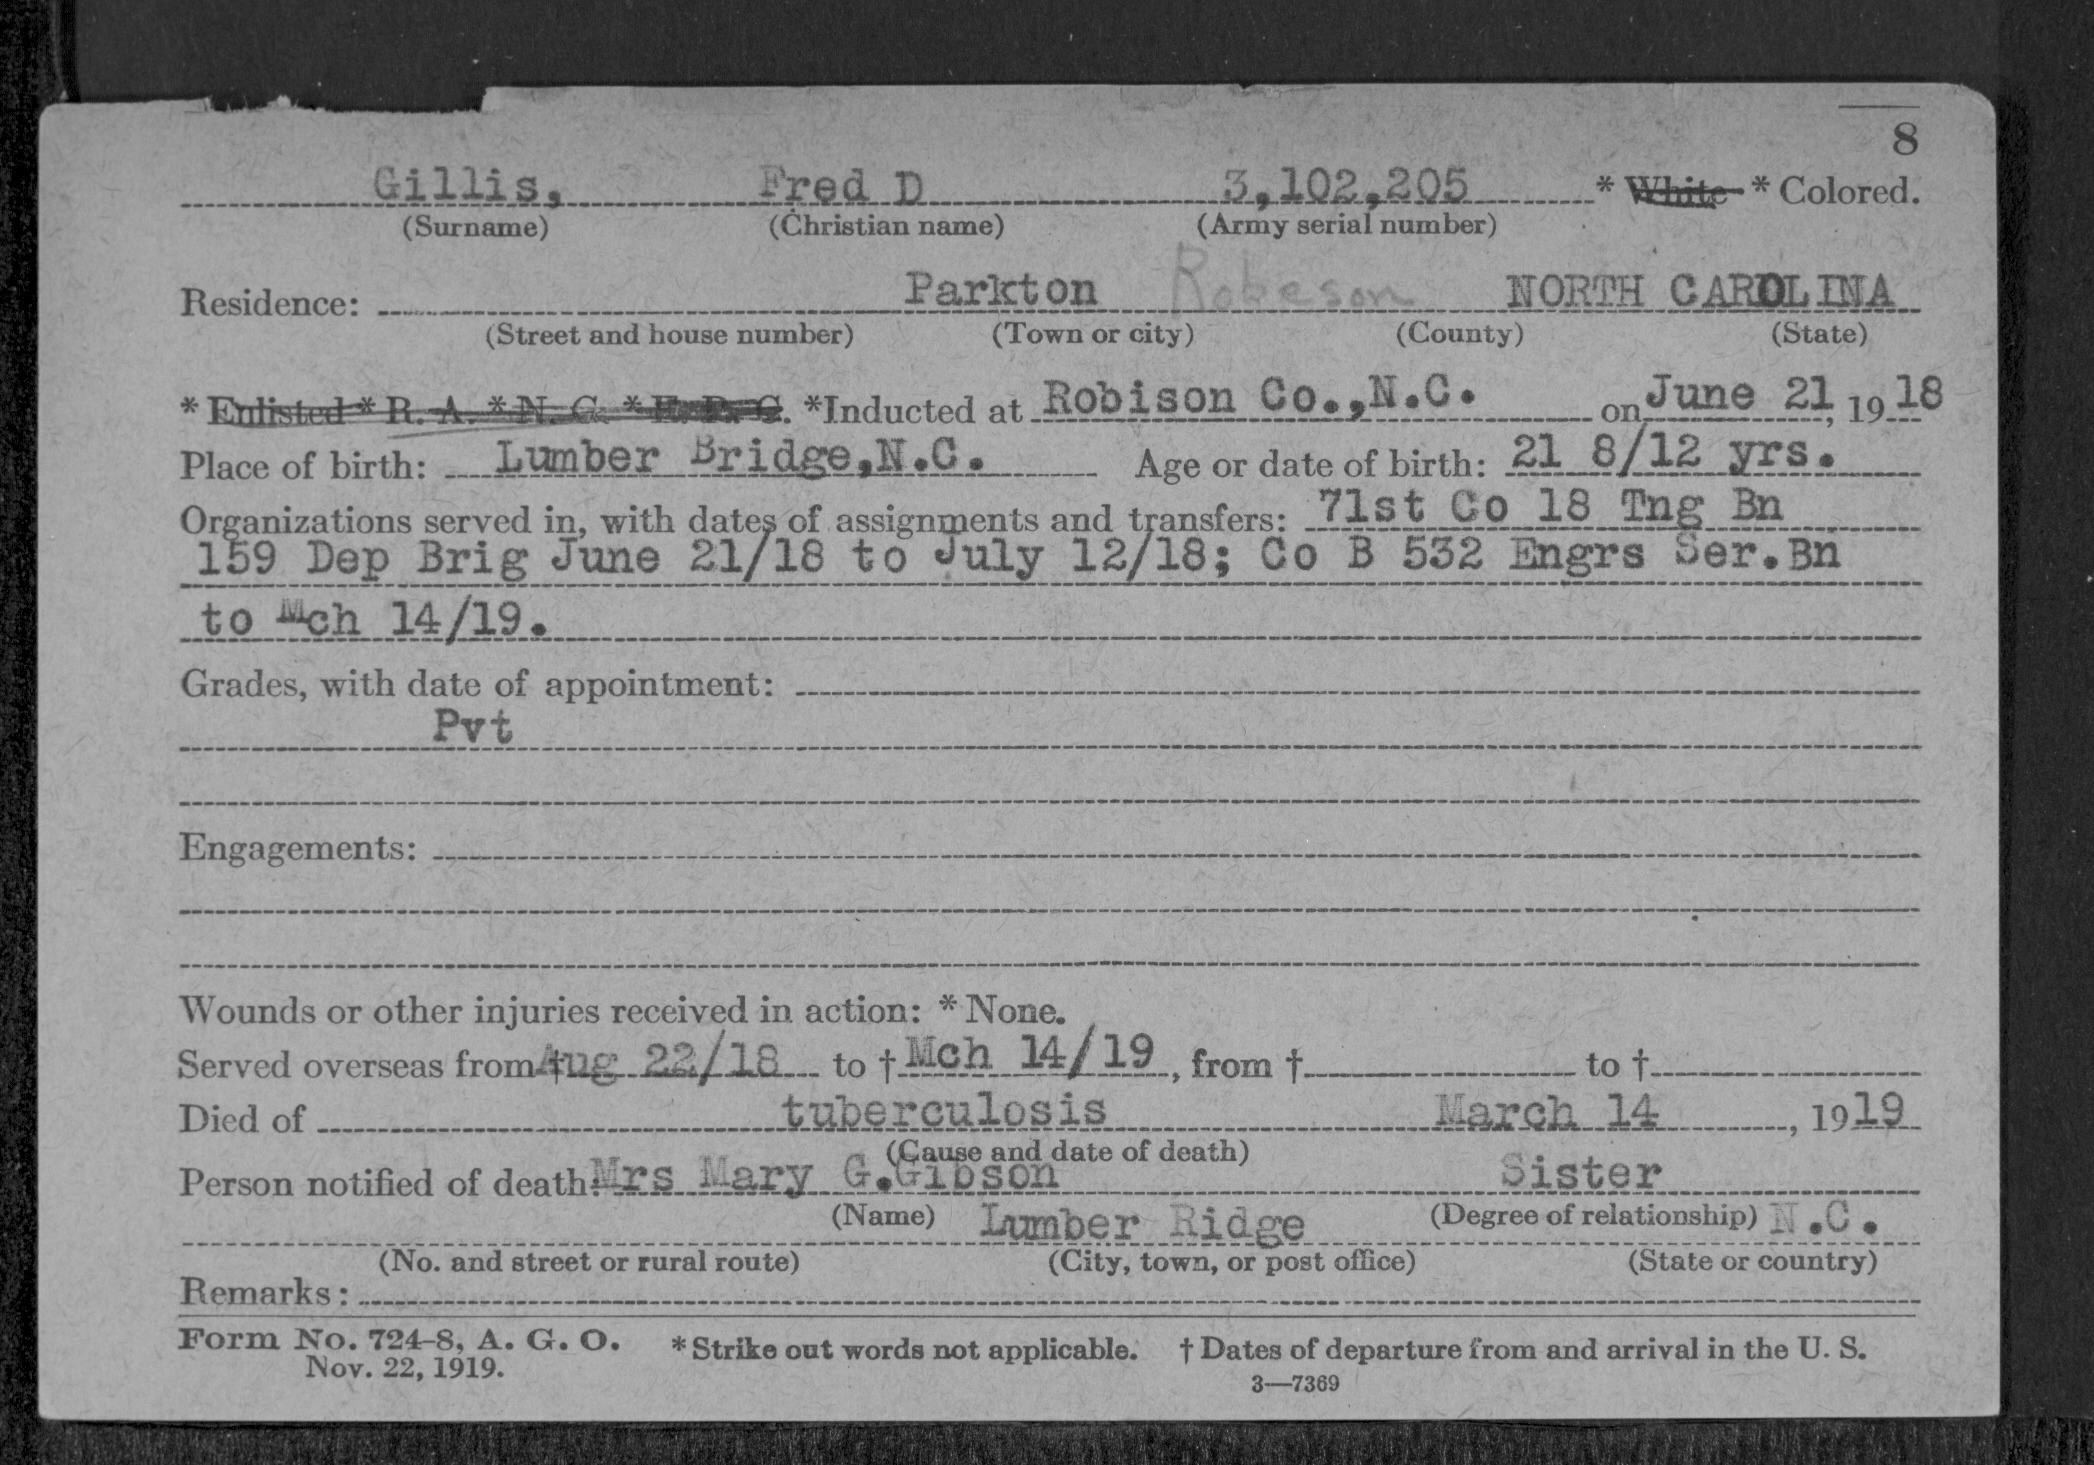 8
Gillis, Fred D 3,102,205 * White * Colored.
(Surname) (Christian name) (Army serial number)
Residence: Parkton Robeson NORTH CAROLINA
(Street and house number) (Town or city) (County) (State)
* Enlisted * R. A. * N. G. * E. R. C. *Inducted at Robison Co.,N.C. on June 21, 1918
Place of birth: Lumber Bridge,N.C. Age or date of birth: 21 8/12 yrs.
Organizations served in, with dates of assignments and transfers: 71st Co 18 Tng Bn
159 Dep Brig June 21/18 to July 12/18; Co B 532 Engrs Ser.Bn
to Mch 14/19.
Grades, with date of appointment:
Pvt
Engagements:
Wounds or other injuries received in action: * None.
Served overseas from † Aug 22/18 to † Mch 14/19, from † to †
Died of tuberculosis March 14, 1919
(Cause and date of death)
Person notified of death: Mrs Mary G.Gibson Sister
(Name) (Degree of relationship)
Lumber Ridge N.C.
(No. and street or rural route) (City, town, or post office) (State or country)
Remarks:
Form No. 724-8, A. G. O. * Strike out words not applicable. † Dates of departure from and arrival in the U. S.
Nov. 22, 1919. 3—7369